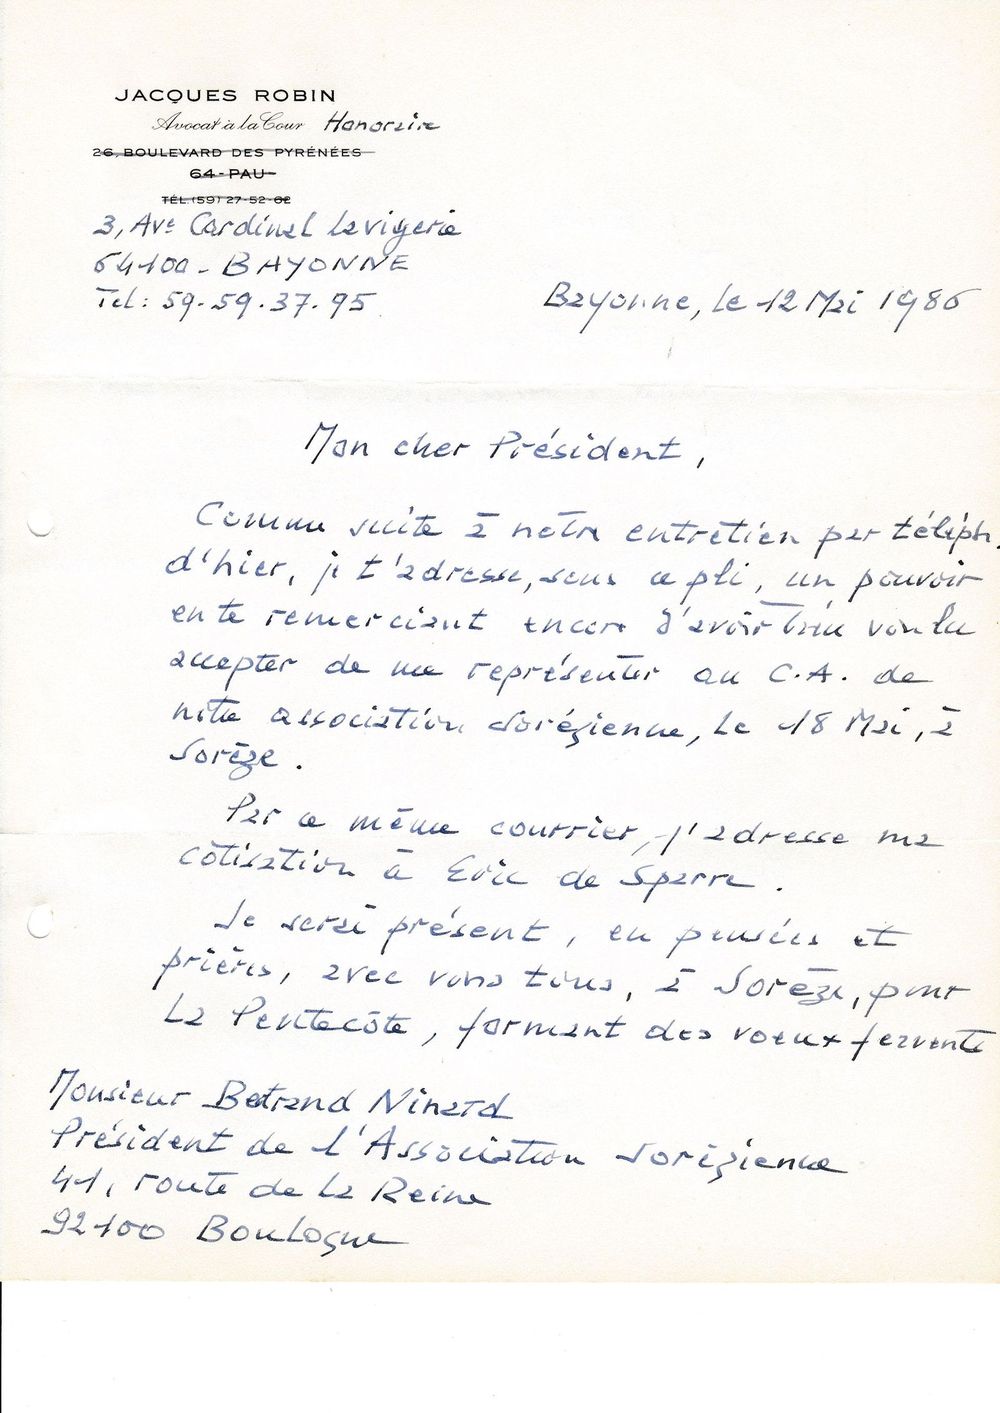 JACQUES ROBIN
Avocat à la Cour Honoraire
26, BOULEVARD DES PYRÉNÉES
64 - PAU
TÉL. (59) 27-52-62
3, Ave Cardinal Lavigerie
64100 - BAYONNE
Tel : 59-59.37.95
Bayonne, le 12 Mai 1986
Mon cher Président,
Comme suite à notre entretien par téléph.
d'hier, je t'adresse, sous ce pli, un pouvoir
en te remerciant encore d'avoir bien voulu
accepter de me représenter au C.A. de
notre association Sorézienne, le 18 Mai, à
Sorèze.
Par ce même courrier, j'adresse ma
cotisation à Eric de Sparre.
Je serai présent, en pensées et
prières, avec vous tous, à Sorèze, pour
la Pentecôte, formant des voeux fervents
Monsieur Betrand Ninard
Président de l'Association Sorézienne
41, route de la Reine
92100 Boulogne